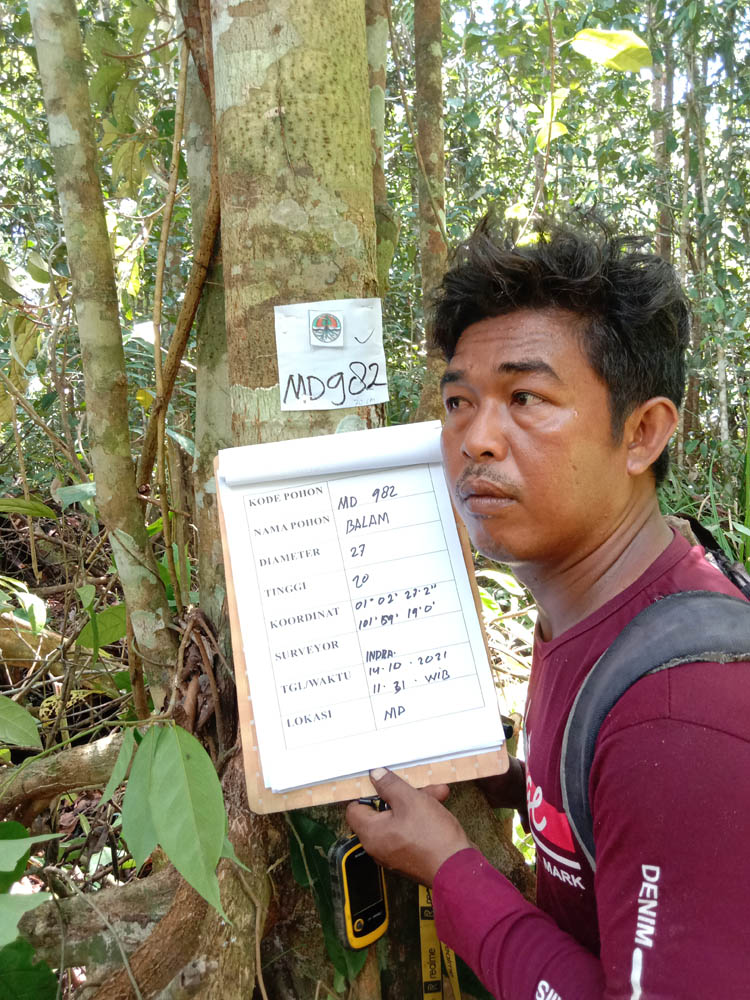 MD982
KODE POHON MD 982
NAMA POHON BALAM
DIAMETER 27
TINGGI 20
KOORDINAT 01° 02' 22.2"
101° 59' 19'0'
SURVEYOR INDRA.
TGL/WAKTU 14.10.2021
11.31. WIB
LOKASI MD
MARK
DENIM
realme